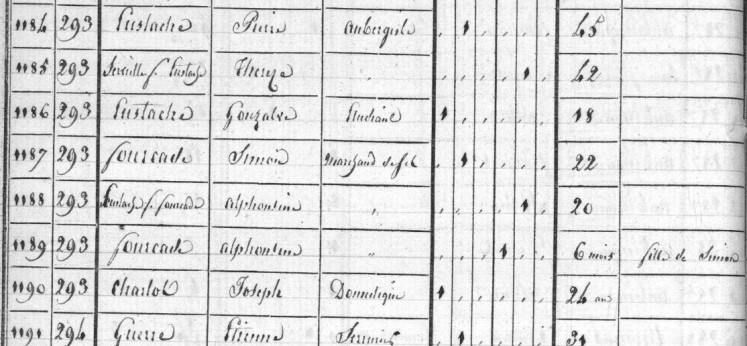 1184 293 Eustache Pierre Aubergiste 45
1185 293 f. Eustache Thereze " 42
1186 293 Eustache Gonzalve Etudiant 18
1187 293 Fourcade Simon Marchand de fil 22
1188 293 Eustache f. Fourcade alphonsine " 20
1189 293 Fourcade alphonsine " 6 mois fille de Simon
1190 293 Charlot Joseph Domestique 24 ans
1191 294 Guerre Etienne 31